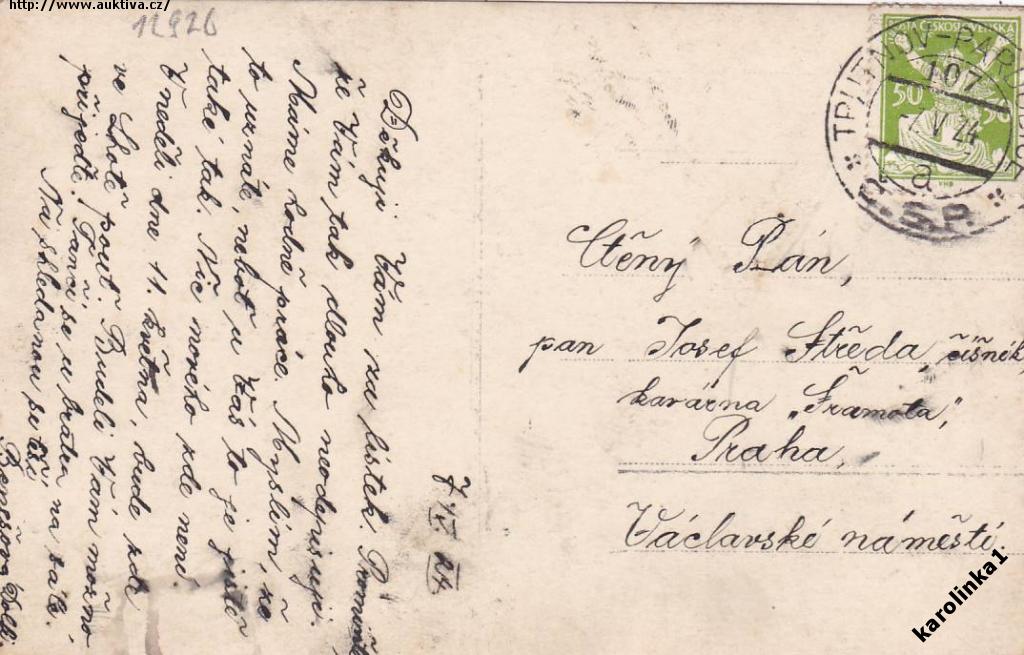 http://www.auktiva.cz/
12926
Děkuji Vám za lístek. Promiňte
že Vám tak dlouho neodepisuji.
Máme hodně práce. Myslím, že
to uznáte, neboť u Vás to je jistě
také tak. Nic nového zde není.
V neděli dne 11. května, bude zde
ve Lhotě pouť. Budeli Vám možno
přijeďte. Tančí se u bratra na sále.
Na shledanou se těší
Benešova
7/V 24
POŠTA ČESKOSLOVENSKÁ
50
50
VHB
TRUTNOV-PAR
107
V 24
a
Č.S.P.
Ctěný Pán,
pan Josef Středa, číšník,
kavárna „Tramota",
Praha,
Václavské náměstí.
karolinka1